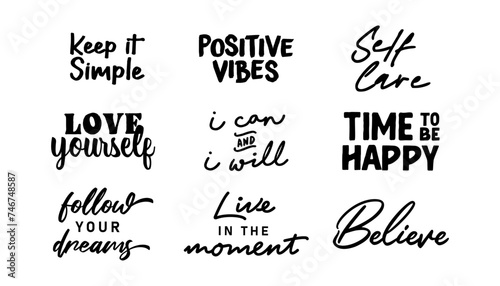 Keep it
Simple
POSITIVE
VIBES
Self
Care
LOVE
yourself
i can
AND
i will
TIME TO BE
HAPPY
follow
YOUR
dreams
Live
IN THE
moment
Believe
Adobe Stock | #746748587